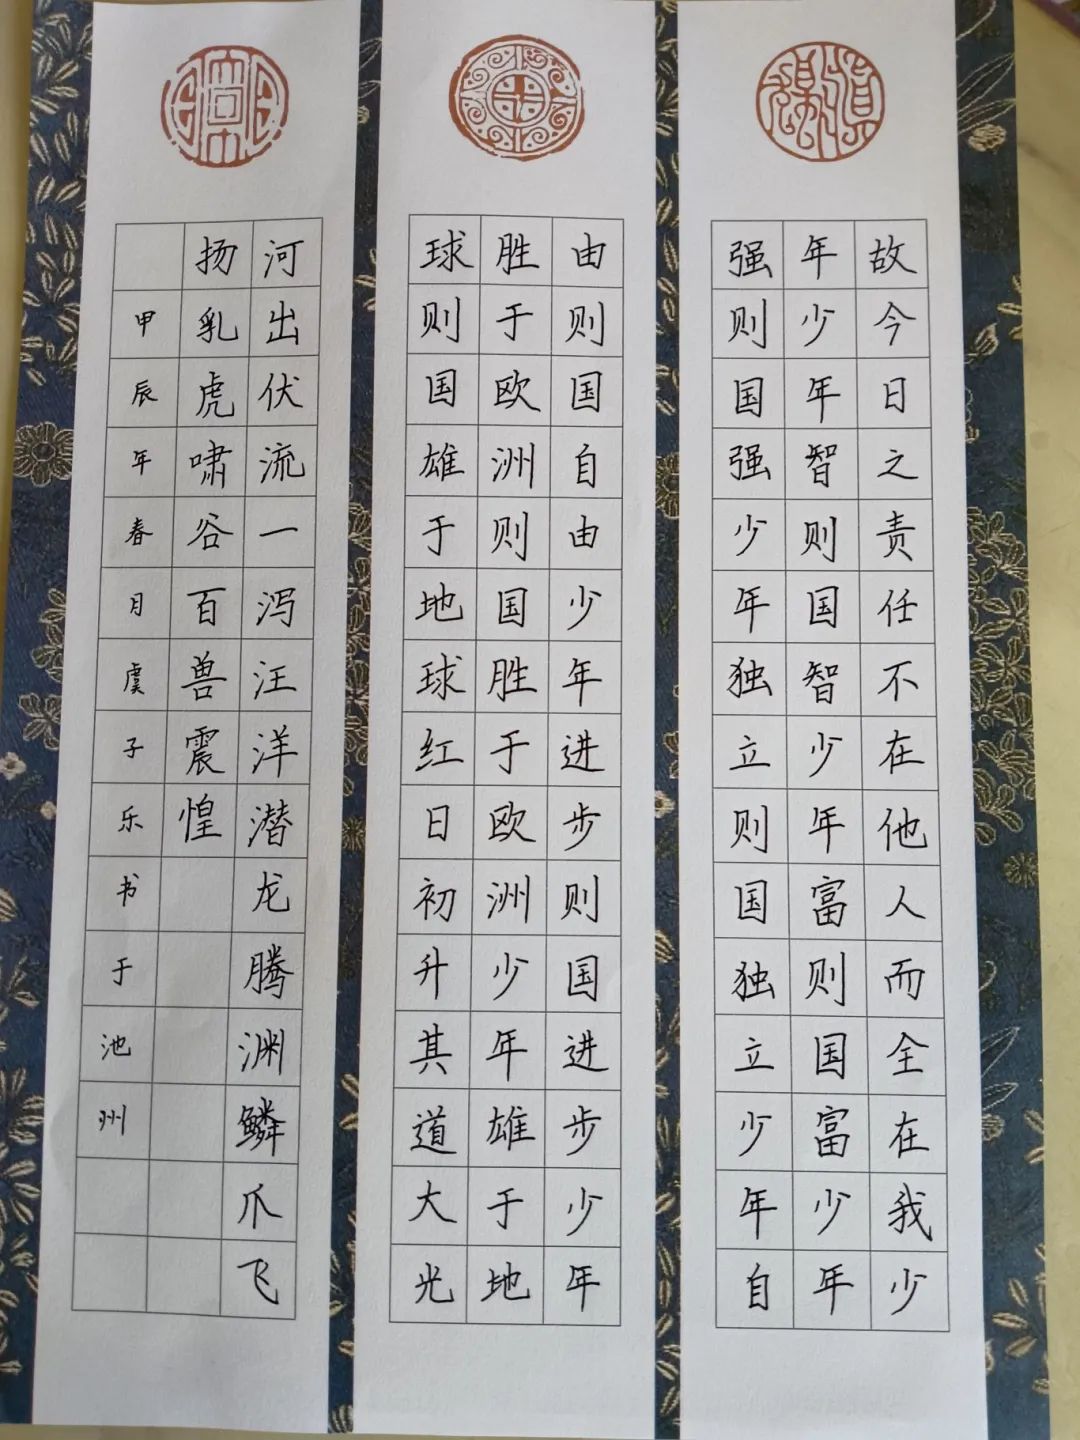 故今日之责任不在他人而全在我少
年少年智则国智少年富则国富少年
强则国强少年独立则国独立少年自
由则国自由少年进步则国进步少年
胜于欧洲则国胜于欧洲少年雄于地
球则国雄于地球红日初升其道大光
河出伏流一泻汪洋潜龙腾渊鳞爪飞
扬乳虎啸谷百兽震惶
甲辰年春月虞子乐书于池州